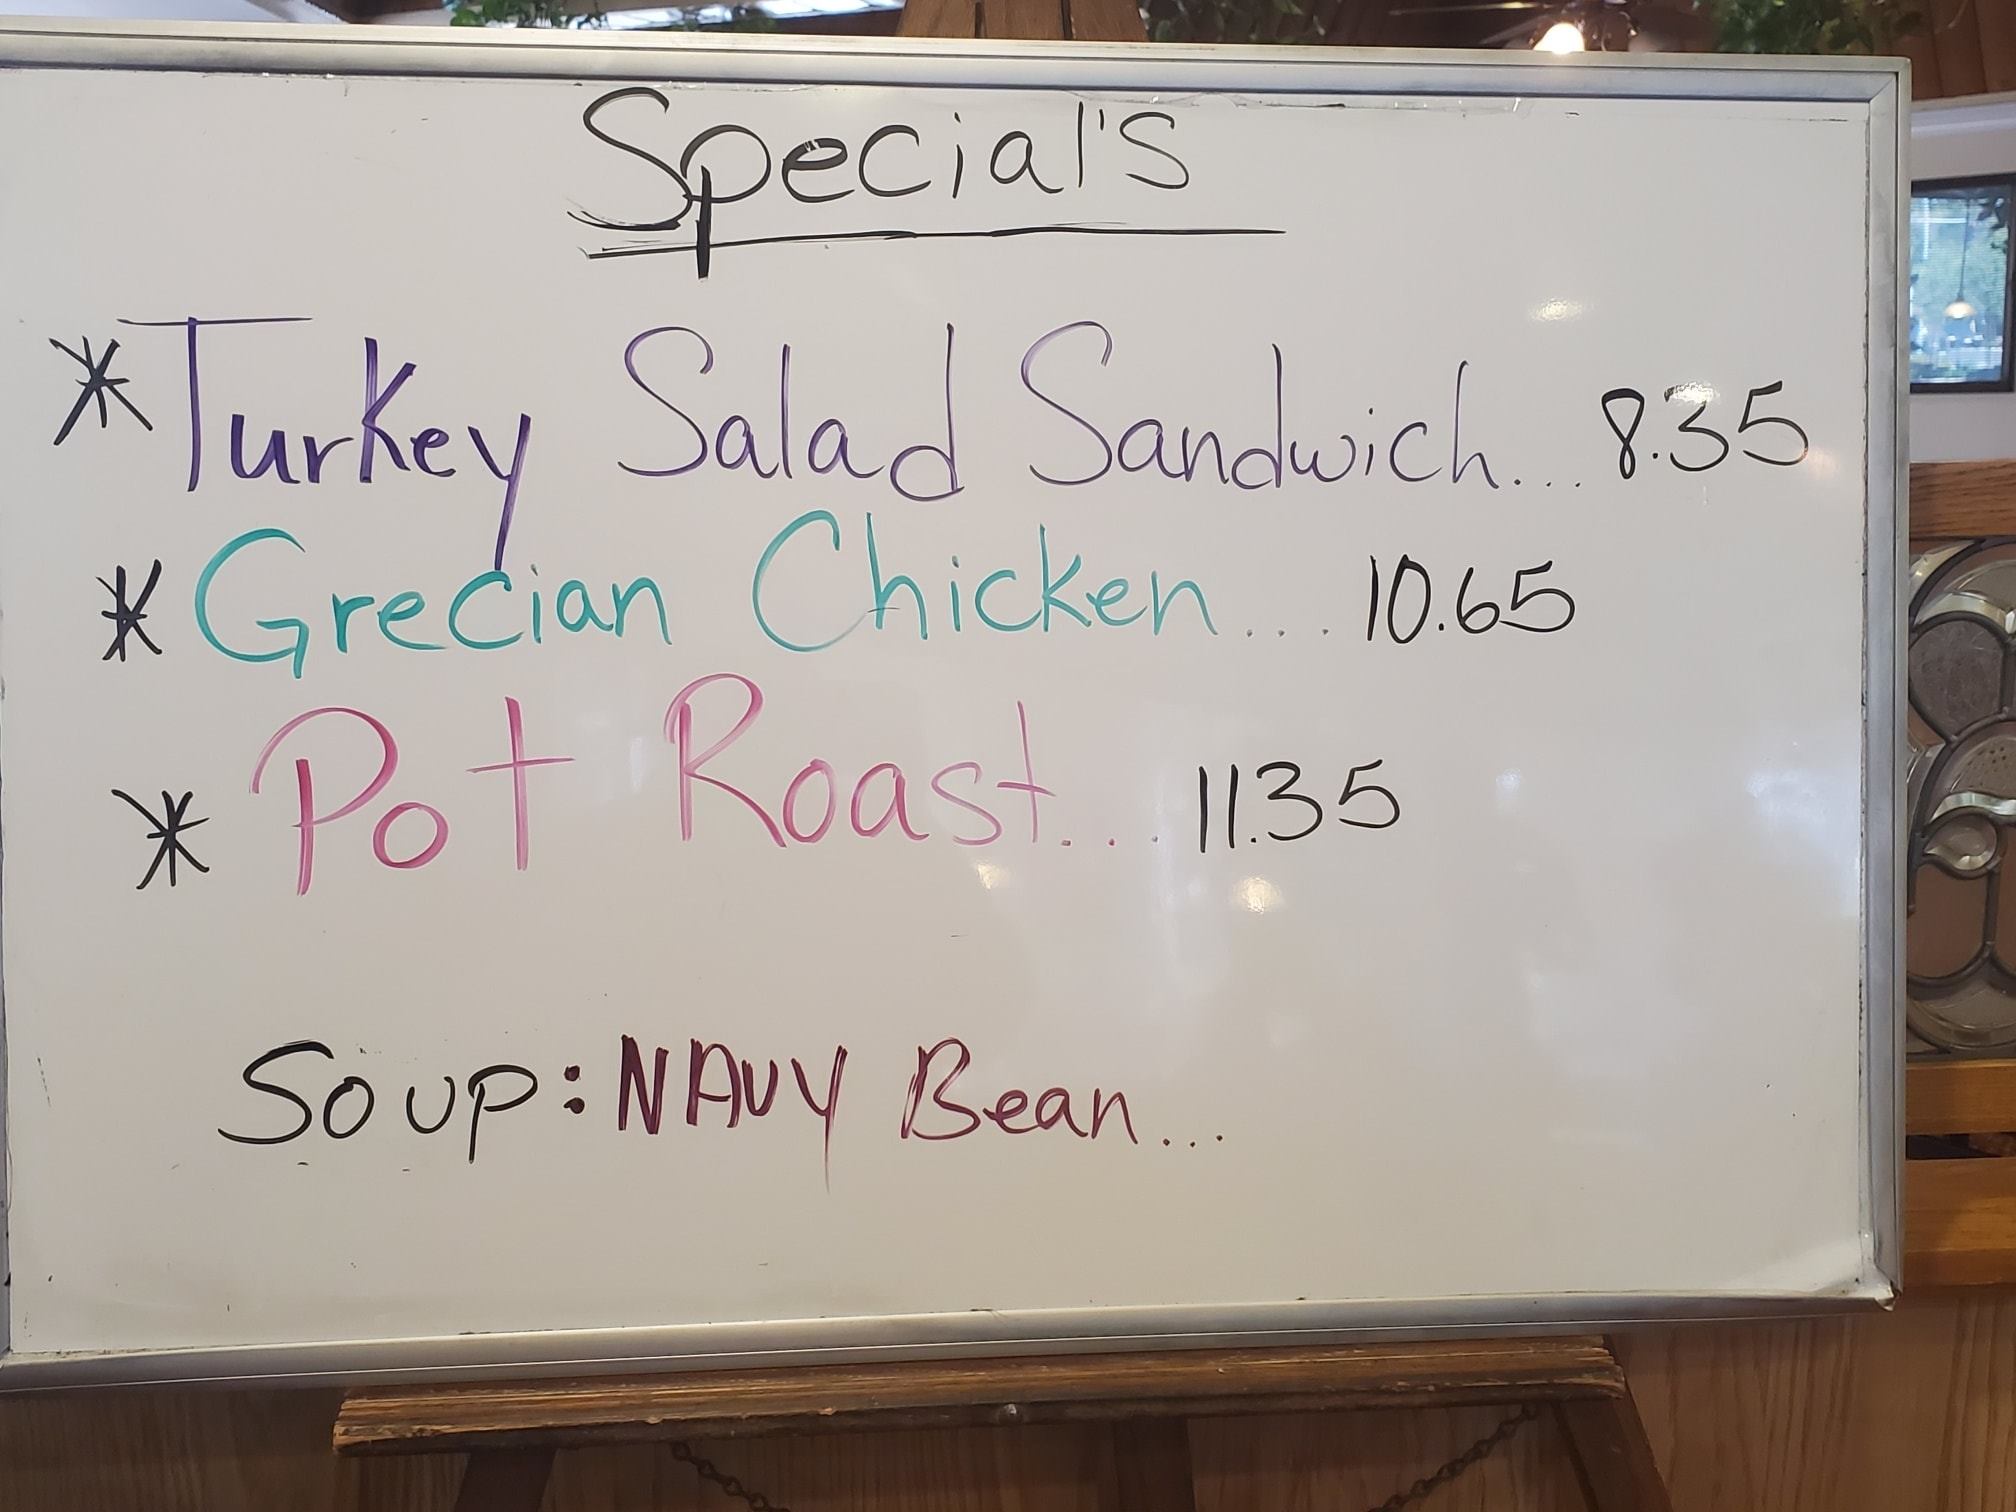 Special's
* Turkey Salad Sandwich... 8.35
* Grecian Chicken... 10.65
* Pot Roast... 11.35
Soup: NAVY Bean...